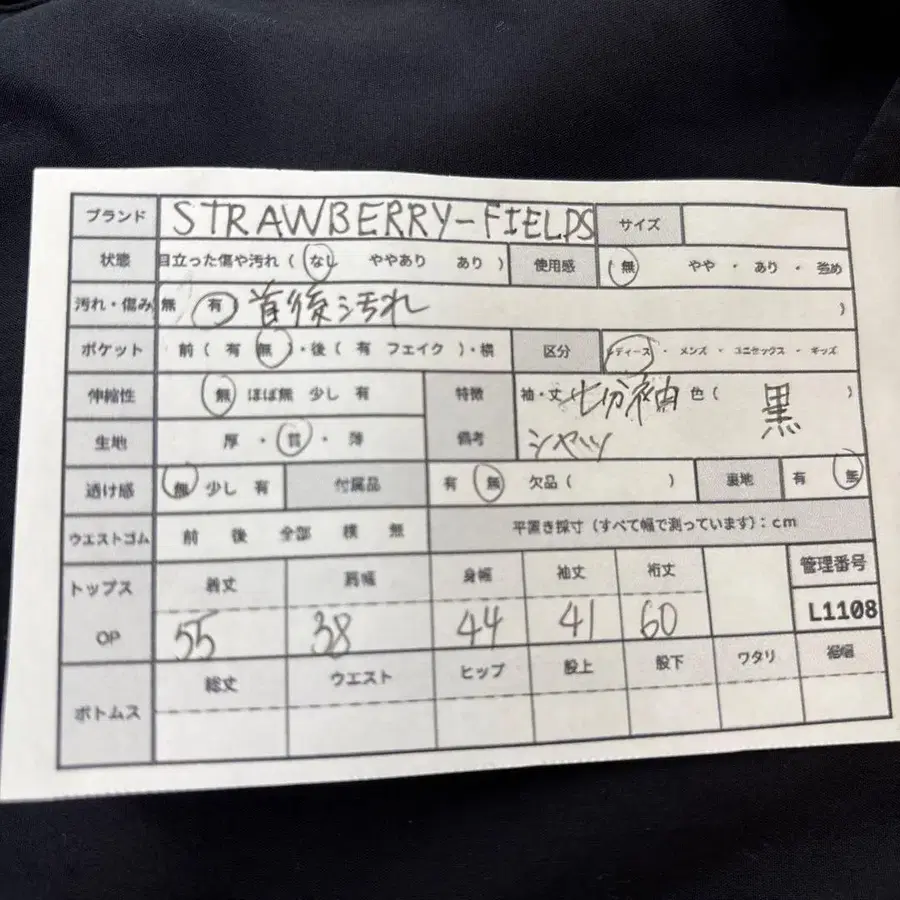 ブランド STRAWBERRY-FIELDS サイズ
状態 目立った傷や汚れ ( なし ややあり あり ) 使用感 ( 無 やや ・ あり ・ 強め
汚れ・傷み 無 有 ) 首後汚れ )
ポケット 前 ( 有 無 ) ・後 ( 有 フェイク ) ・横 区分 レディース ・ メンズ ・ ユニセックス ・ キッズ
伸縮性 無 ほぼ無 少し 有 特徴 袖・丈 ( 七分袖 色 ( 黒 )
生地 厚 ・ 普 ・ 薄 備考 シャツ
透け感 無 少し 有 付属品 有 無 欠品 ( ) 裏地 有 無
ウエストゴム 前 後 全部 横 無 平置き採寸 (すべて幅で測っています) : cm
トップス 着丈 肩幅 身幅 袖丈 裄丈 管理番号
OP 55 38 44 41 60 L1108
ボトムス 総丈 ウエスト ヒップ 股上 股下 ワタリ 裾幅